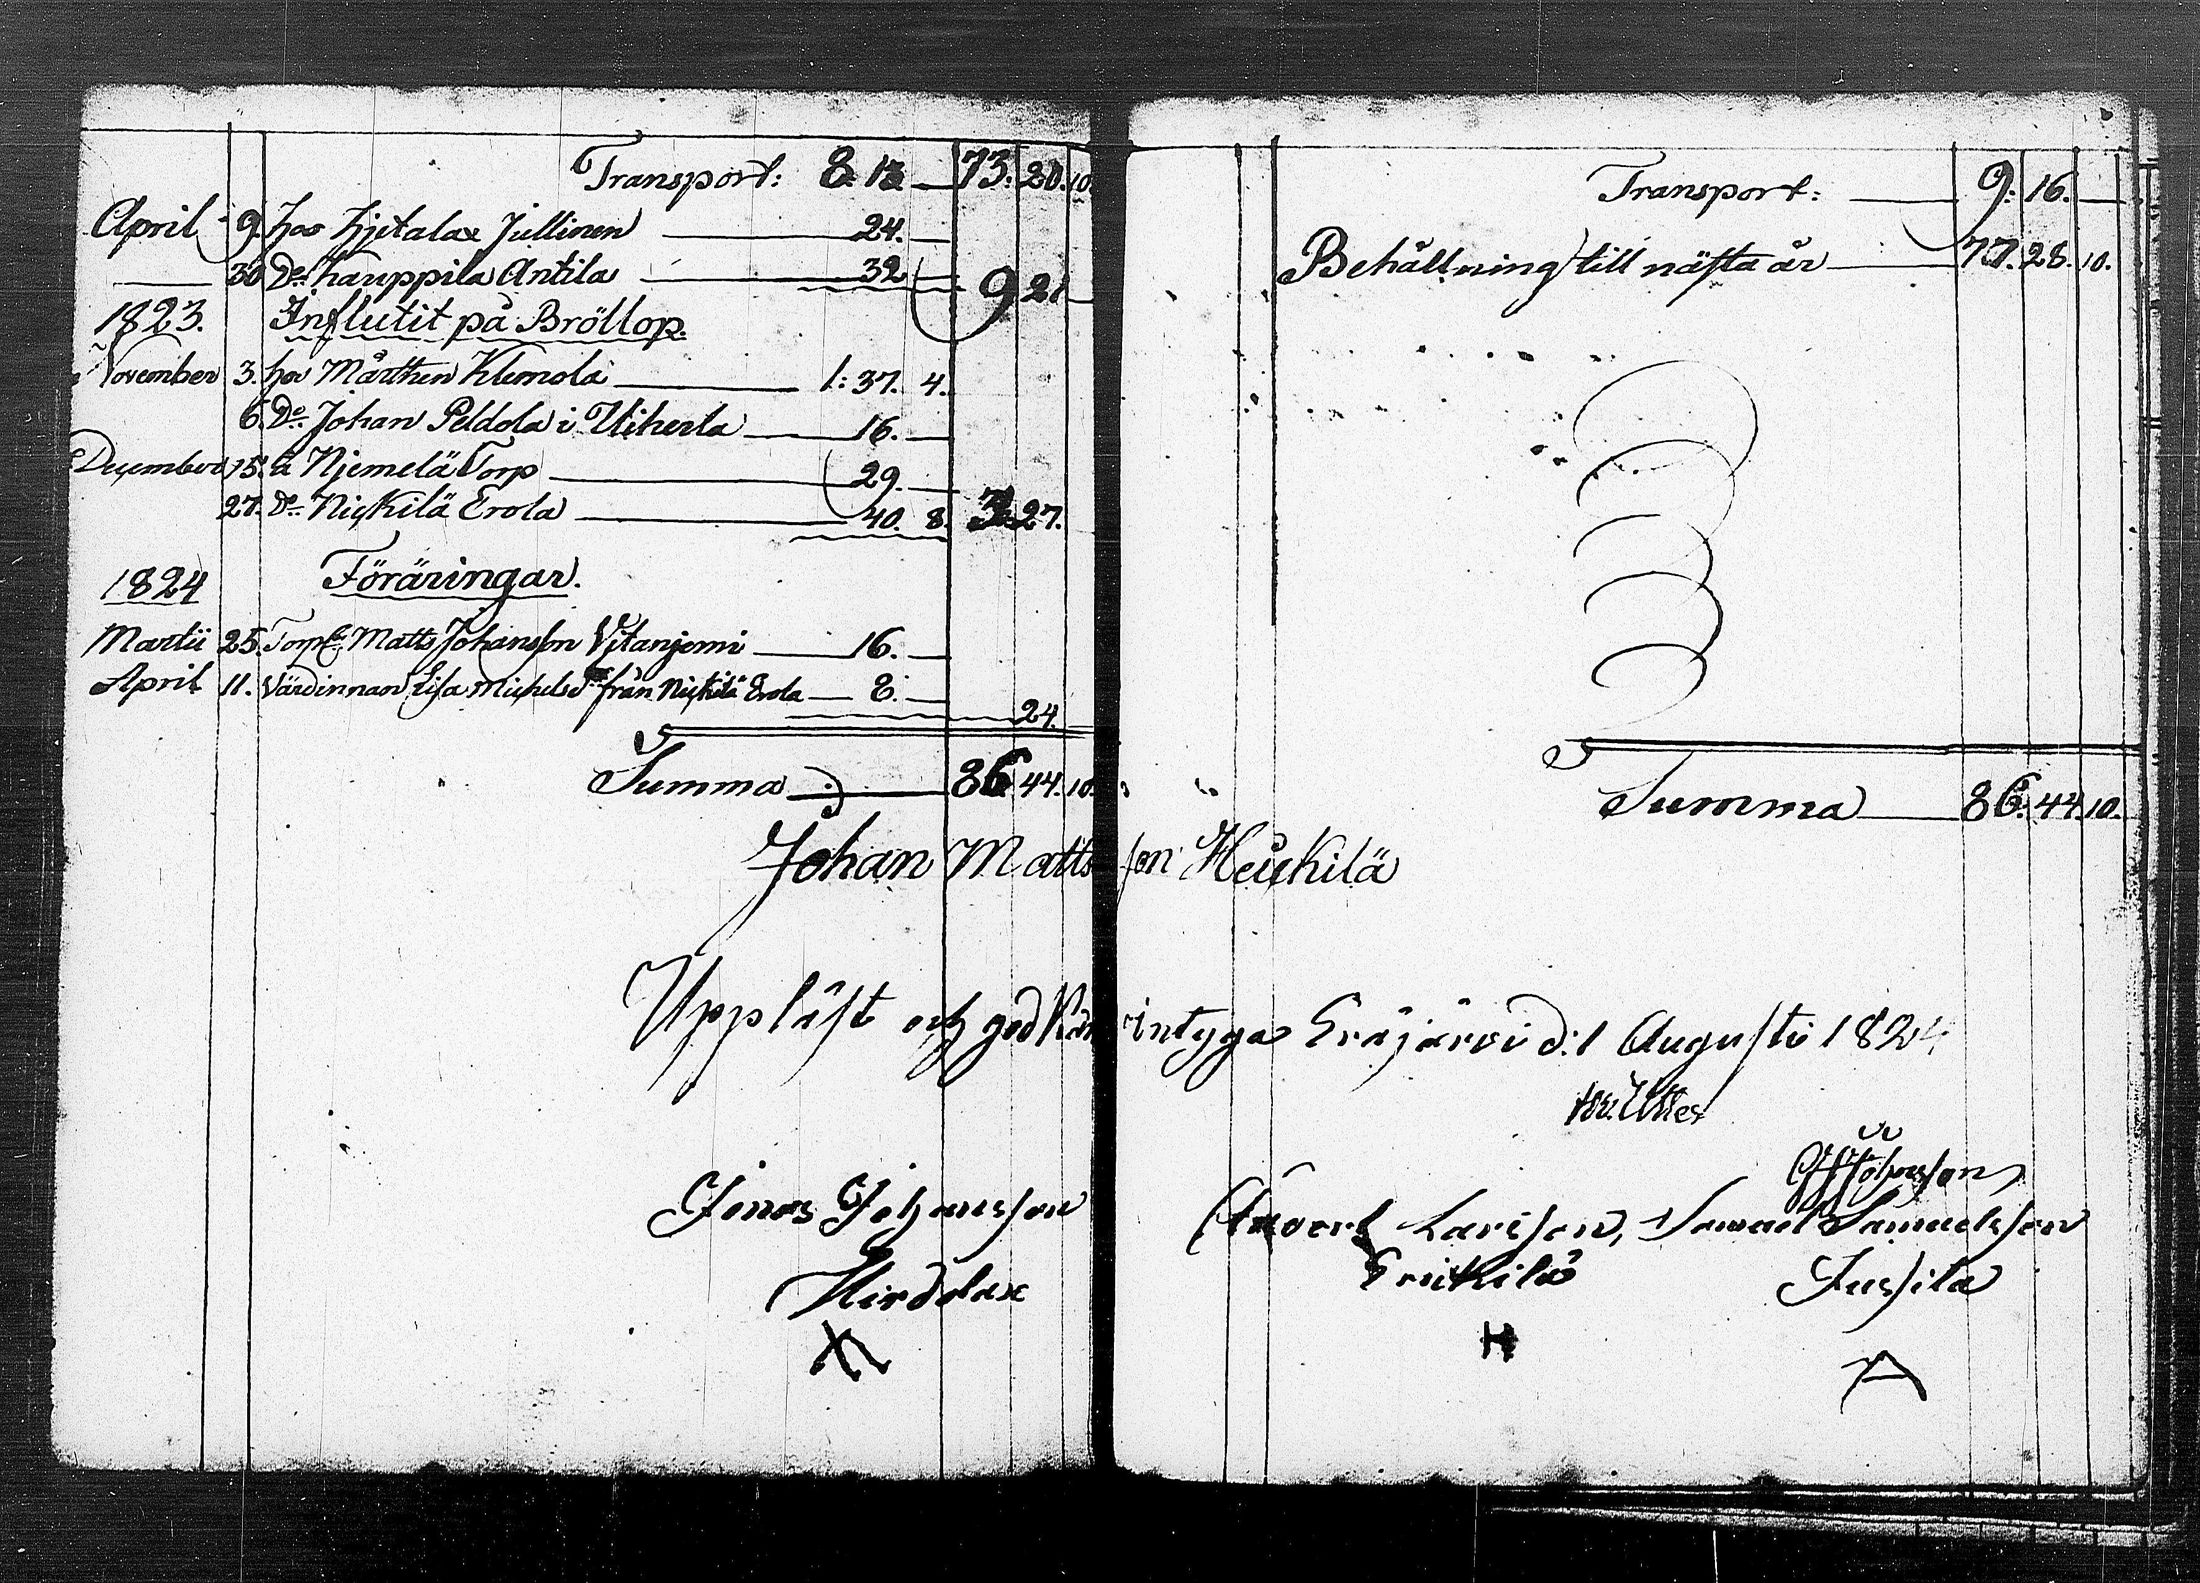 Transport: 8. 13. — 73. 20. 10.
April 9. hos Hjitalax Jullinen — 24. —
— 30 Do Kauppila Antila — 32 — 9 21 —
1823. Influtit på Bröllop.
November 3. hos Mårthen Klemola — 1: 37. 4.
6. Do Johan Peldola i Uiherla — 16. —
December 15. a Njemelä Torp — 29. —
27. Do Nickilä Erola — 40. 8. 3. 27.
1824 Föräringar.
Martii 25. Torp. Matts Johansson Vitanjemi — 16. —
April 11. Värdinnan Lisa Michelsd. från Nickilä Erola — 8. —
24. —
Summa — 86. 44. 10.
Transport: — 9. 16. —
Behållning till nästa år — 77. 28. 10.
Summa — 86. 44. 10.
Johan Mattsson Heickilä
Uppläst och godkän intygas Eräjärvi d: 1 Augusti 1824
Jonas Johansson
Hirdolax
Larsson, Samuel Samuelsson
Erickilä Jussila